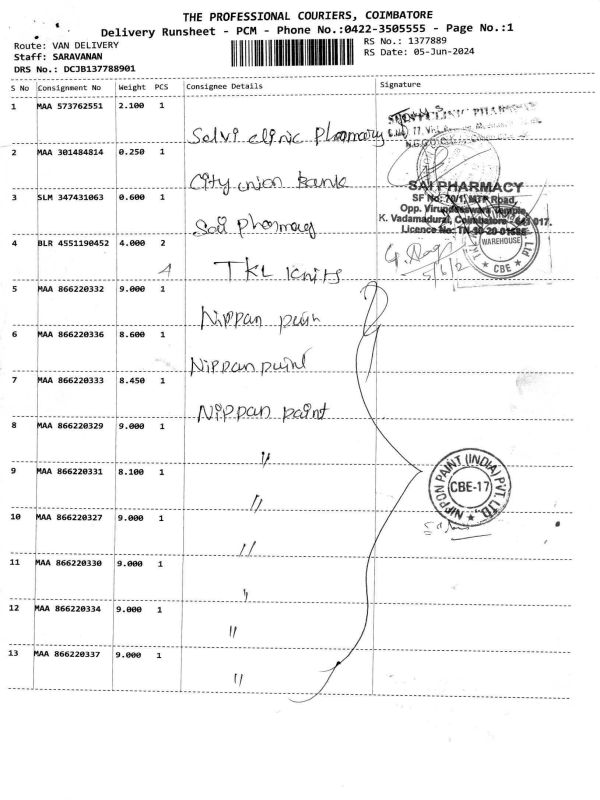 THE PROFESSIONAL COURIERS, COIMBATORE
Delivery Runsheet - PCM - Phone No.:0422-3505555 - Page No.:1
Route: VAN DELIVERY
RS No.: 1377889
Staff: SARAVANAN
RS Date: 05-Jun-2024
DRS No.: DCJB137788901
S No Consignment No Weight PCS Consignee Details Signature
1 MAA 573762551 2.100 1 Selvi clinic pharmacy
2 MAA 301484814 0.250 1 City union Bank
3 SLM 347431063 0.600 1 Sai pharmacy
SAI PHARMACY
SF No: 70/1, MTP Road,
Opp. Virundeeswarar Temple,
K. Vadamadurai, Coimbatore - 641 017.
Licence No: TN-
4 BLR 4551190452 4.000 2 TKL Knits
WAREHOUSE
CBE
5/6/2
5 MAA 866220332 9.000 1 Nippan pain
6 MAA 866220336 8.600 1 Nippan paint
7 MAA 866220333 8.450 1 Nippan paint
8 MAA 866220329 9.000 1 "
9 MAA 866220331 8.100 1 "
NIPPON PAINT (INDIA) PVT. LTD
CBE-17
10 MAA 866220327 9.000 1 "
11 MAA 866220330 9.000 1 "
12 MAA 866220334 9.000 1 "
13 MAA 866220337 9.000 1 "